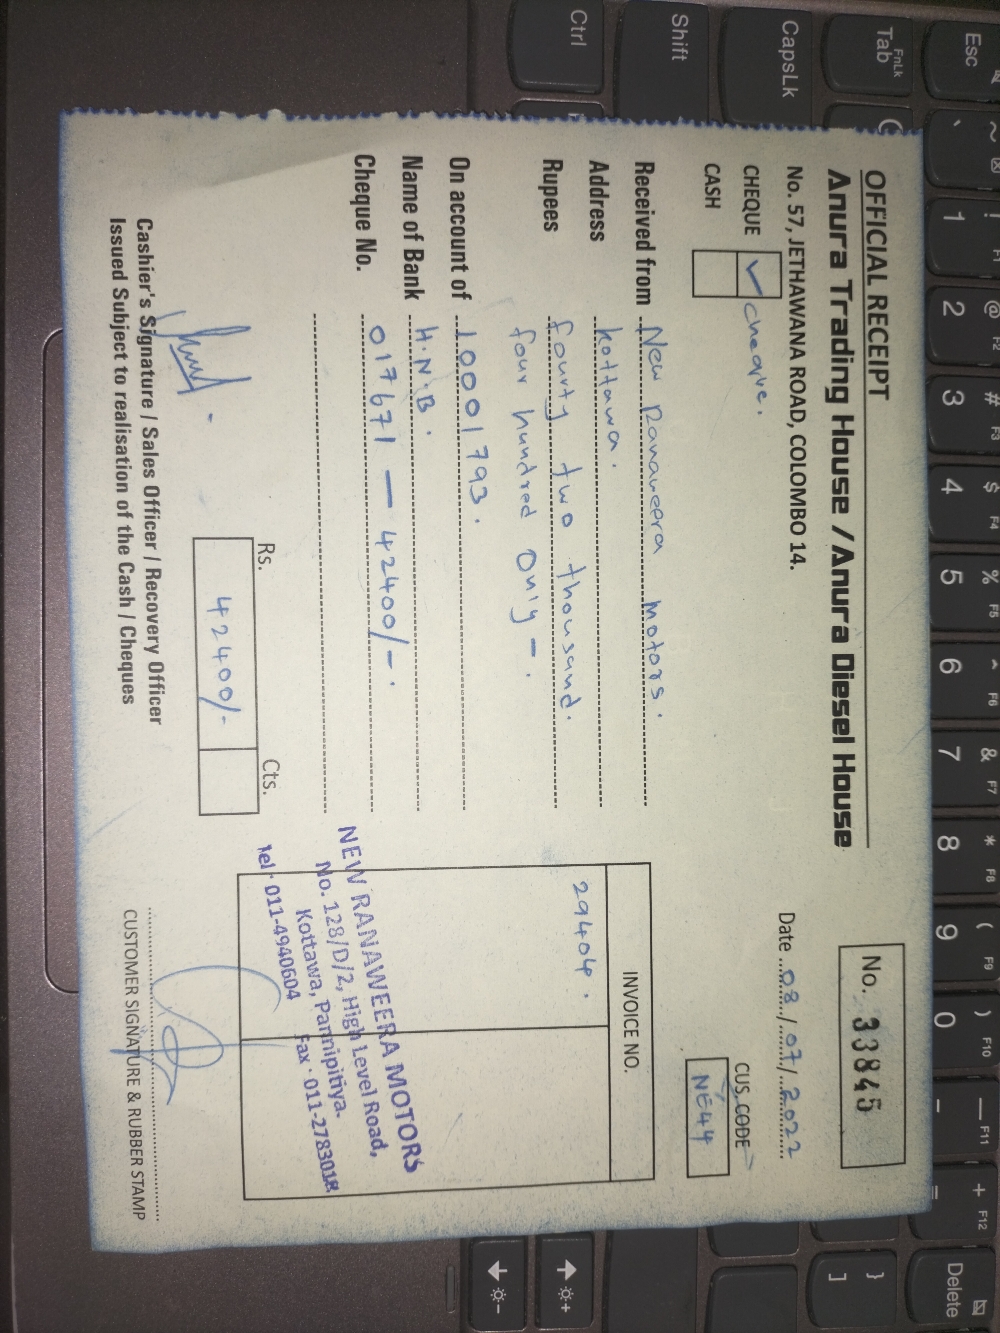 OFFICIAL RECEIPT
Anura Trading House / Anura Diesel House
No. 57, JETHAWANA ROAD, COLOMBO 14.
No. 33845
Date 08/07/2022
CHEQUE ✓ cheque.
CASH
CUS. CODE
NE44
Received from New Ranaweera motors.
Address kottawa.
Rupees fourty two thousand.
four hundred only -.
On account of 10001793.
Name of Bank H.N.B.
Cheque No. 017671 — 42400/-.
INVOICE NO.
29404.
Rs. Cts.
42400/-
NEW RANAWEERA MOTORS
No. 128/D/2, High Level Road,
Kottawa, Pannipitiya.
Tel : 011-4940604 Fax : 011-2783018
Cashier's Signature / Sales Officer / Recovery Officer
Issued Subject to realisation of the Cash / Cheques
CUSTOMER SIGNATURE & RUBBER STAMP
Esc
FnLk
Tab
CapsLk
Shift
Ctrl
~
`
! F1
1
@ F2
2
# F3
3
$ F4
4
% F5
5
^ F6
6
& F7
7
* F8
8
( F9
9
) F10
0
— F11
-
+ F12
=
Delete
}
]